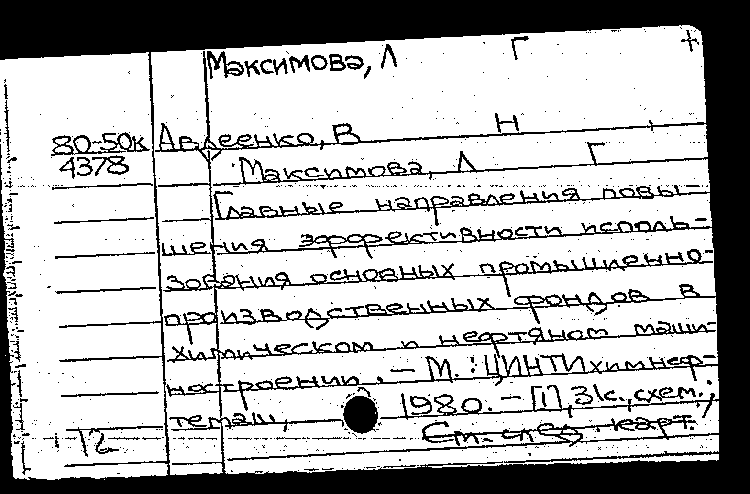 Максимова, Л Г +
80-50к Авдеенко, В Н
4378 Максимова, Л Г
Главные направления повы-
шения эффективности исполь-
зования основных промышленно-
производственных фондов в
химическом и нефтяном маши-
ностроении. – М. : ЦИНТИхимнеф-
темаш, 1980. – [1], 31с., схем.;
12 См. след. карт.